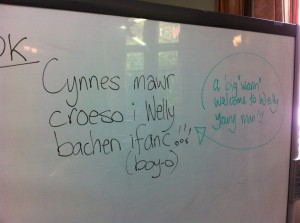 OK
Cynnes mawr
croeso i Welly
bachen ifanc!!!
(boy-o)
a big "warm"
welcome to Welly
young man!!